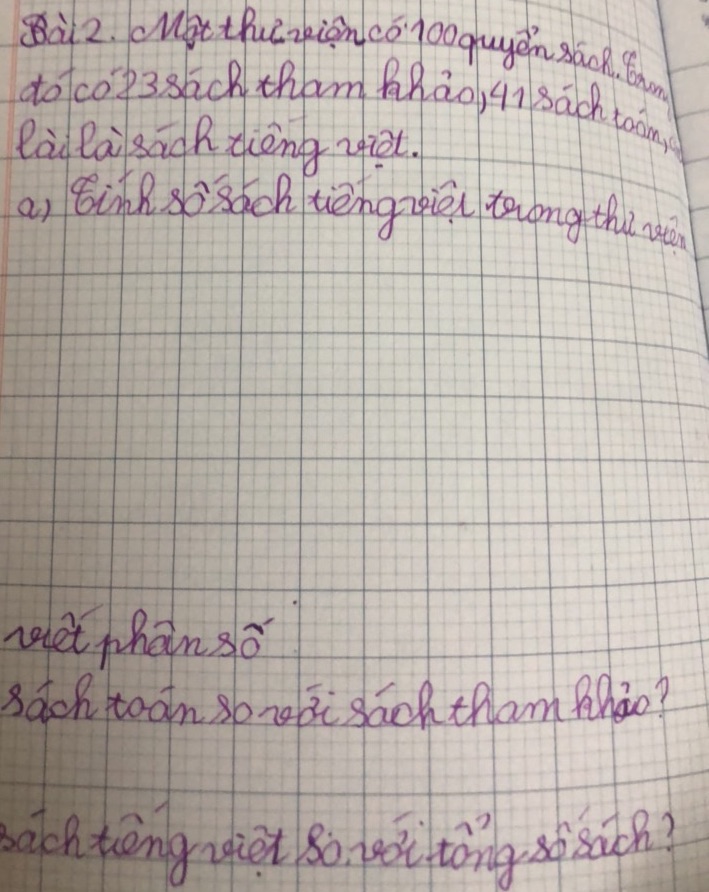 Bài 2. Một thư viện có 100 quyển sách. Trong
đó có 23 sách tham khảo, 41 sách toán,
lại là sách tiếng việt.
a) Tính số sách tiếng việt trong thư viện
viết phân số
sách toán so với sách tham khảo?
sách tiếng việt so với tổng số sách?